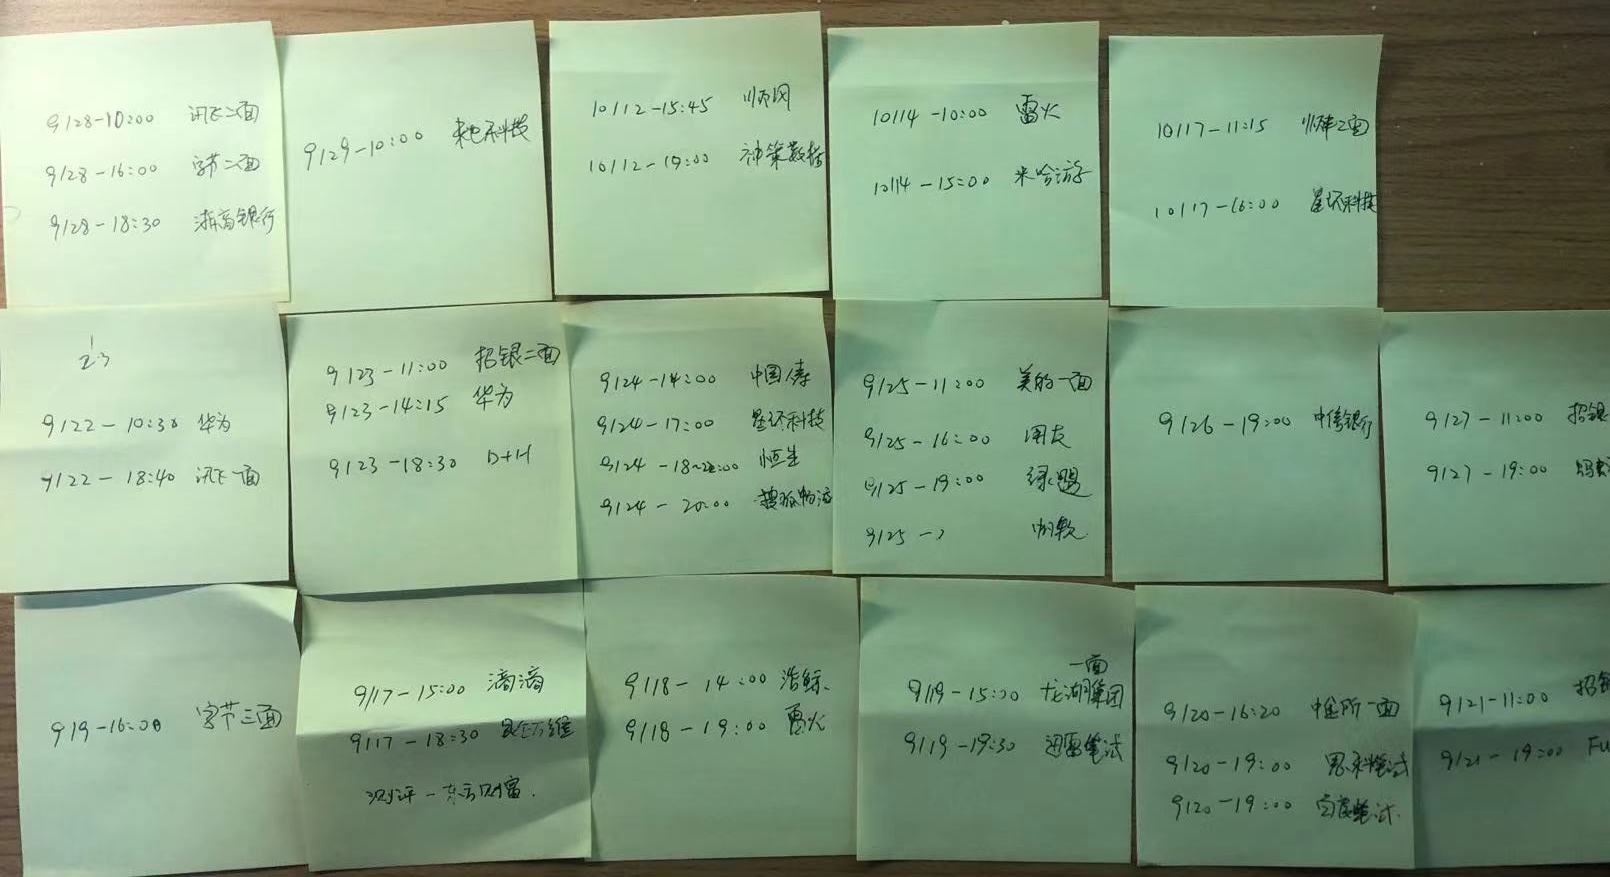 9/28-10:00 讯飞二面
9/28-16:00 字节二面
9/28-18:30 浙商银行
9/29-10:00 来也科技
10/12-15:45 顺网
10/12-19:00 神策数据
10/14-10:00 雷火
10/14-15:00 米哈游
10/17-11:15 二面
10/17-16:00 星环科技
9/22-10:30 华为
9/22-18:40 讯飞一面
9/23-11:00 招银二面
9/23-14:15 华为
9/23-18:30 D+H
9/24-14:00 中国人寿
9/24-17:00 星环科技
9/24-18~20:00 恒生
9/24-20:00 搜狐畅游
9/25-11:00 美的一面
9/25-16:00 用友
9/25-19:00 绿盟
9/25-?
9/26-19:00 中信银行
9/27-11:00 招银
9/27-19:00
9/9-16:00 字节三面
9/17-15:00 滴滴
9/17-18:30 昆仑万维
测评-东方财富.
9/18-14:00 浩鲸.
9/18-19:00 雷火
一面
9/19-15:00 龙湖集团
9/19-19:30 迅雷笔试
9/20-16:20 中金所一面
9/20-19:00 思科笔试
9/20-19:00 百度笔试.
9/21-11:00 招银
9/21-19:00 Fu